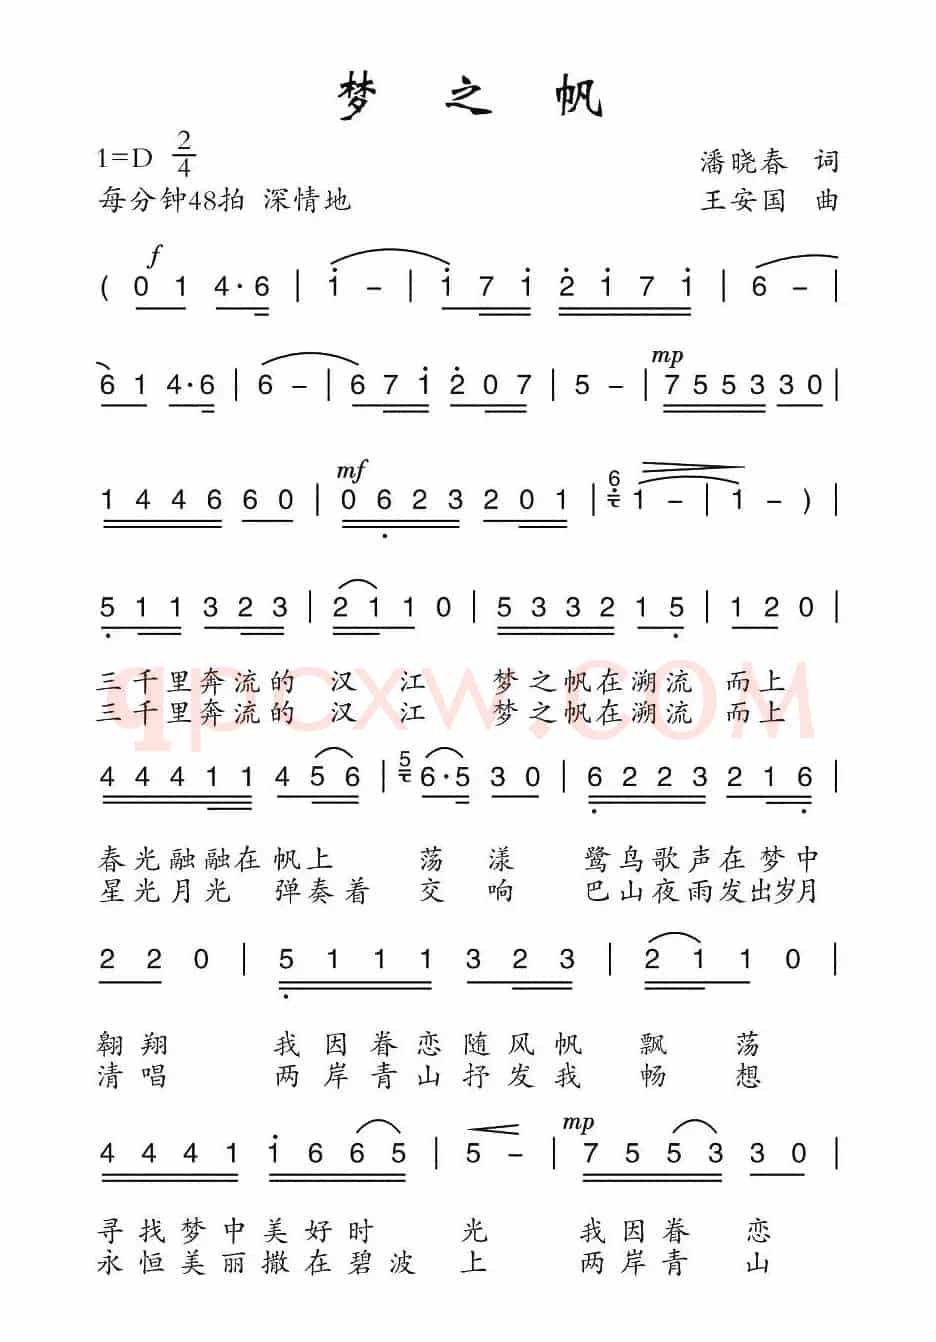 梦之帆
1=D 2/4
潘晓春 词
每分钟48拍 深情地
王安国 曲
f
( 0 1 4·6 | i - | i 7 i 2̇ i 7 i | 6 - |
mp
6 1 4·6 | 6 - | 6 7 i 2̇ 0 7 | 5 - | 7 5 5 3 3 0 |
mf
1 4 4 6 6 0 | 0 6̣ 2 3 2 0 1 | 6 1 - | 1 - ) |
5̣ 1 1 3 2 3 | 2 1 1 0 | 5 3 3 2 1 5̣ | 1 2 0 |
三千里奔流的 汉 江 梦之帆在溯流 而上
三千里奔流的 汉 江 梦之帆在溯流 而上
qpcxw.COM
4 4 4 1 1 4 5 6 | 5 6·5 3 0 | 6̣ 2 2 3 2 1 6̣ |
春光融融在帆上 荡 漾 鹭鸟歌声在梦中
星光月光 弹奏着 交 响 巴山夜雨发出岁月
2 2 0 | 5̣ 1 1 1 3 2 3 | 2 1 1 0 |
翱翔 我因眷恋随风帆 飘 荡
清唱 两岸青山抒发我 畅 想
mp
4 4 4 1 i 6 6 5 | 5 - | 7 5 5 3 3 0 |
寻找梦中美好时 光 我因眷 恋
永恒美丽撒在碧波 上 两岸青 山